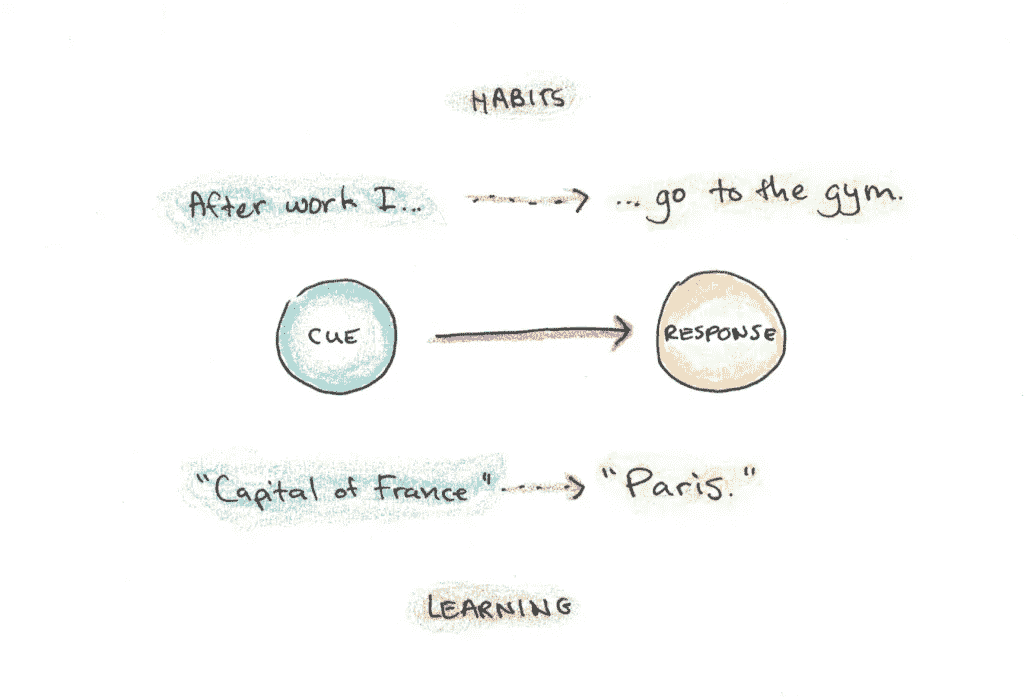 HABITS
After work I... ... go to the gym.
CUE RESPONSE
"Capital of France" "Paris."
LEARNING